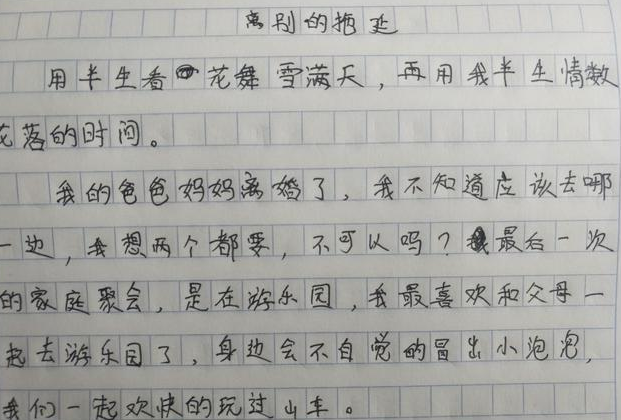 离别的拖延
用半生看花舞雪满天，再用我半生情数
花落的时间。
我的爸爸妈妈离婚了，我不知道应该去哪
一边，我想两个都要，不可以吗？最后一次
的家庭聚会，是在游乐园，我最喜欢和父母一
起去游乐园了，身边会不自觉的冒出小泡泡，
我们一起欢快的玩过山车。